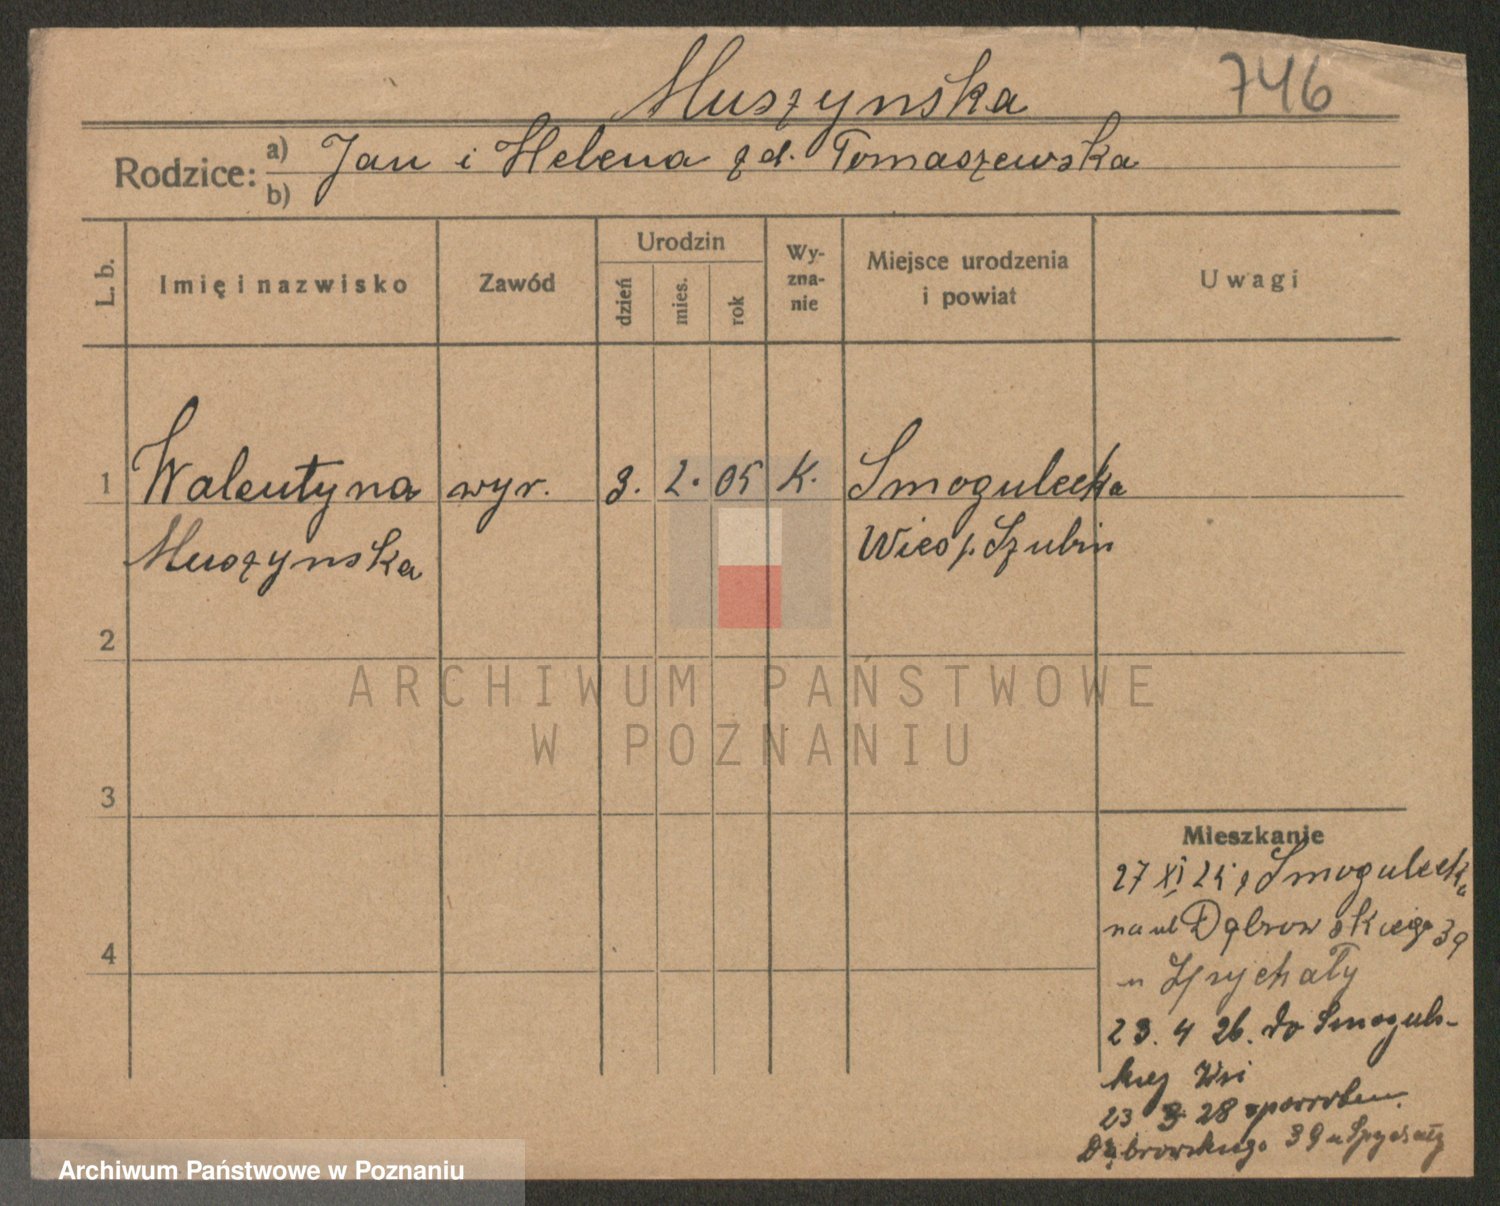 Muszynska
746
Rodzice: a) Jan i Helena zd. Tomaszewska
b)
L. b.
Imię i nazwisko
Zawód
Urodzin
dzień
mies.
rok
Wy-
zna-
nie
Miejsce urodzenia
i powiat
Uwagi
1 Walentyna wyr. 3. 2. 05 K. Smogulecka
Muszynska Wieś p. Szubin
2
ARCHIWUM PAŃSTWOWE
W POZNANIU
3
Mieszkanie
27 XI 25 z Smogulecka
na ul Dąbrowskiego 39
4
u Spychały
23. 4 26. do Smoguls-
kiej Wsi
23 3 28
Dąbrowskiego 39 u Spychały
Archiwum Państwowe w Poznaniu